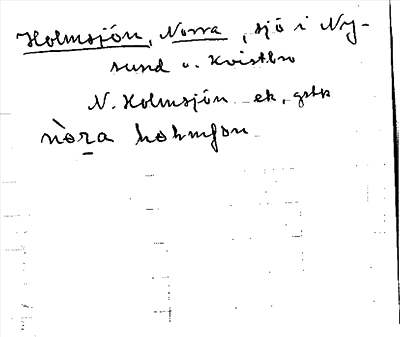 Holmsjön, Norra, sjö i Ny-
sund o. Kvistbro
N. Holmsjön ek, gstk
nòra holmʃon